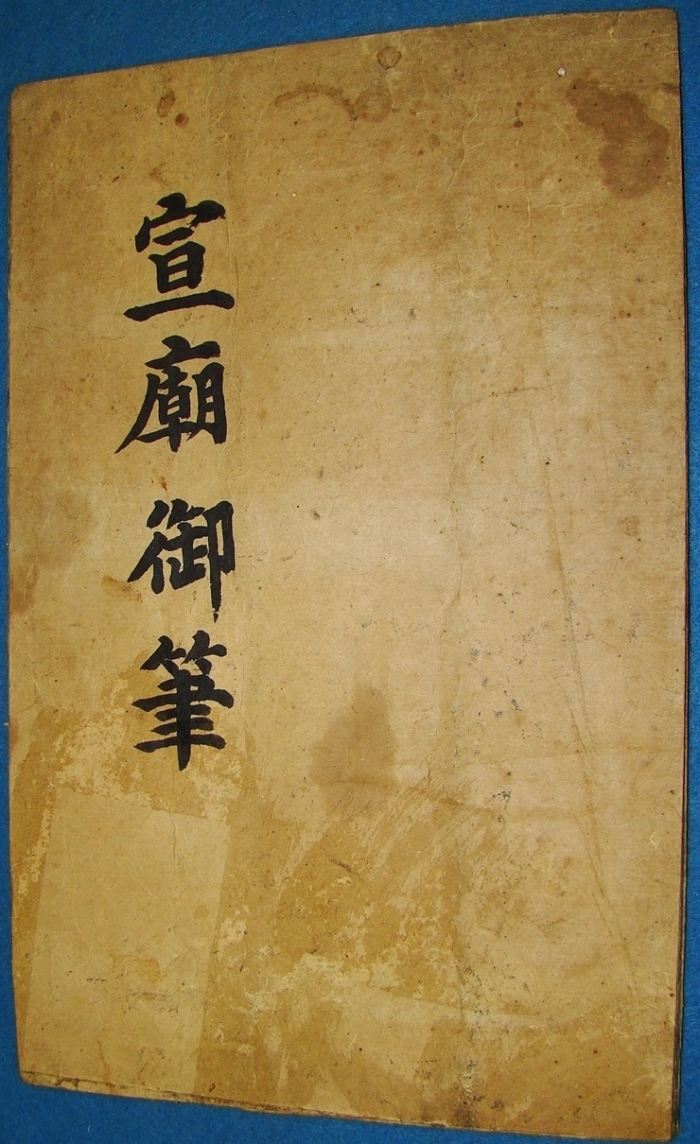 宣廟御筆